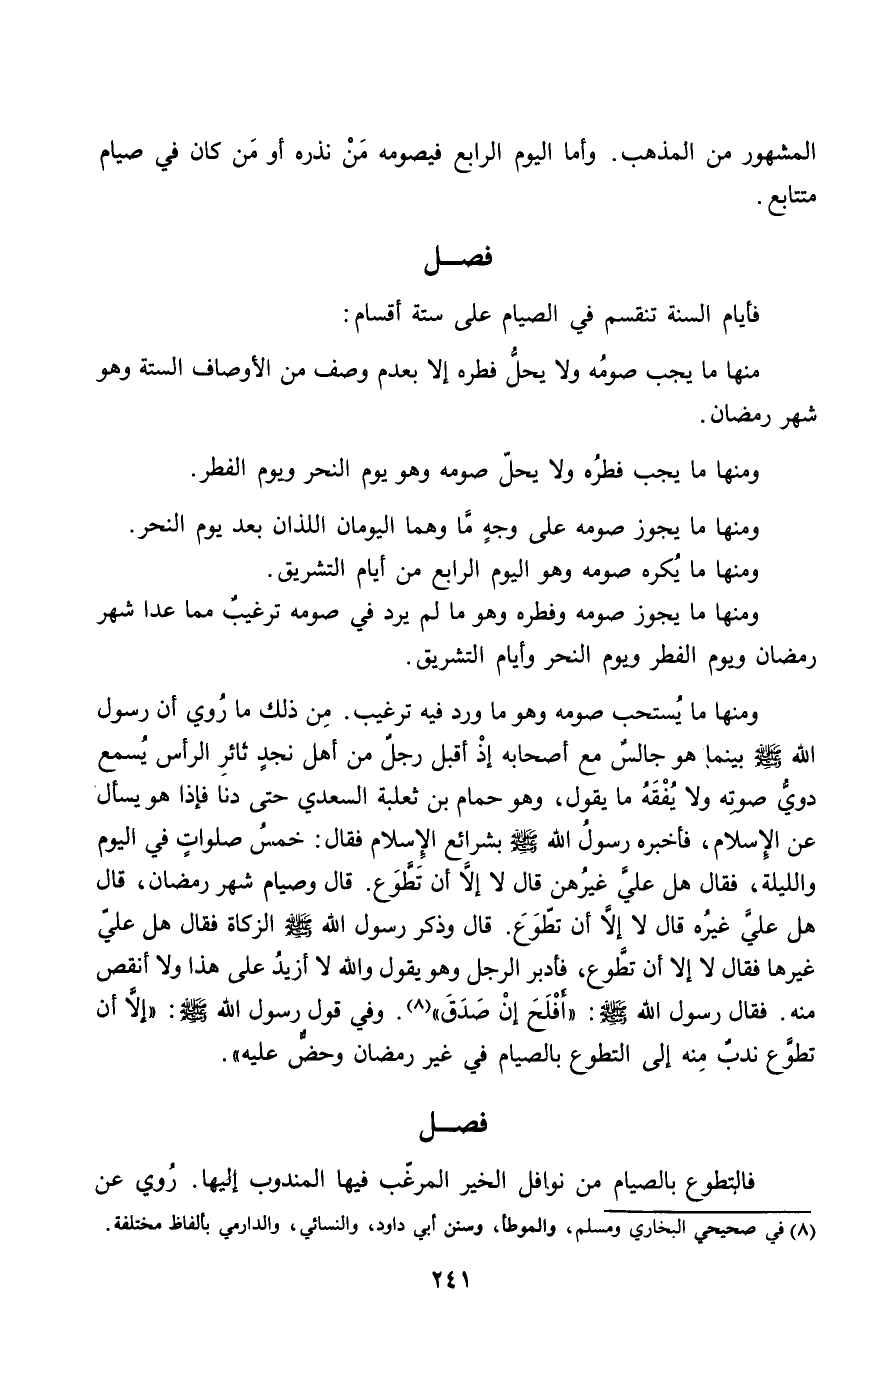 المشهور من المذهب. وأما اليوم الرابع فيصومه مَنْ نذره أو مَن كان في صيام
متتابع.
فصـــل
فأيام السنة تنقسم في الصيام على ستة أقسام:
منها ما يجب صومُه ولا يحلُّ فطره إلا بعدم وصف من الأوصاف الستة وهو
شهر رمضان.
ومنها ما يجب فطرُه ولا يحلّ صومه وهو يوم النحر ويوم الفطر.
ومنها ما يجوز صومه على وجهٍ مَّا وهما اليومان اللذان بعد يوم النحر.
ومنها ما يُكره صومه وهو اليوم الرابع من أيام التشريق.
ومنها ما يجوز صومه وفطره وهو ما لم يرد في صومه ترغيبٌ مما عدا شهر
رمضان ويوم الفطر ويوم النحر وأيام التشريق.
ومنها ما يُستحب صومه وهو ما ورد فيه ترغيب. مِن ذلك ما رُوي أن رسول
الله ﷺ بينما هو جالسٌ مع أصحابه إذْ أقبل رجلٌ من أهل نجدٍ ثائرِ الرأس يُسمع
دويُّ صوتِه ولا يُفْقَهُ ما يقول، وهو حمام بن ثعلبة السعدي حتى دنا فإذا هو يسأل
عن الإِسلام، فأخبره رسولُ الله ﷺ بشرائع الإِسلام فقال: خمسُ صلواتٍ في اليوم
والليلة، فقال هل عليَّ غيرُهن قال لا إلاَّ أن تَطَّوَع. قال وصيام شهر رمضان، قال
هل عليَّ غيرُه قال لا إلاَّ أن تطّوَعَ. قال وذكر رسول الله ﷺ الزكاة فقال هل عليّ
غيرها فقال لا إلا أن تطَّوع، فأدبر الرجل وهو يقول والله لا أزيدُ على هذا ولا أنقص
منه. فقال رسول الله ﷺ: «أَفْلَحَ إنْ صَدَقَ»(٨). وفي قول رسول الله ﷺ: «إلاَّ أن
تطوَّع ندبٌ مِنه إلى التطوع بالصيام في غير رمضان وحضٌّ عليه».
فصـــل
فالتطوع بالصيام من نوافل الخير المرغَّب فيها المندوب إليها. رُوي عن
(٨) في صحيحي البخاري ومسلم، والموطأ، وسنن أبي داود، والنسائي، والدارمي بألفاظ مختلفة.
٢٤١